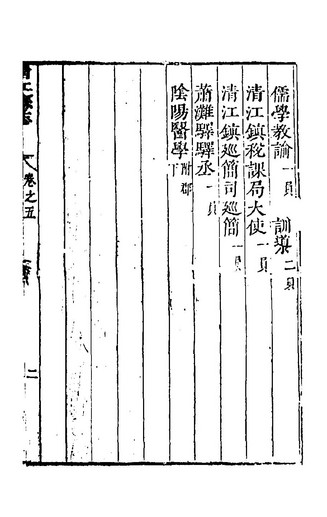 儒學教諭一員 訓導二員
清江鎮稅課局大使一員
清江鎮巡簡司巡簡一員
蕭灘驛驛丞一員
陰陽醫學附郡下
清江縣志 卷之五 二